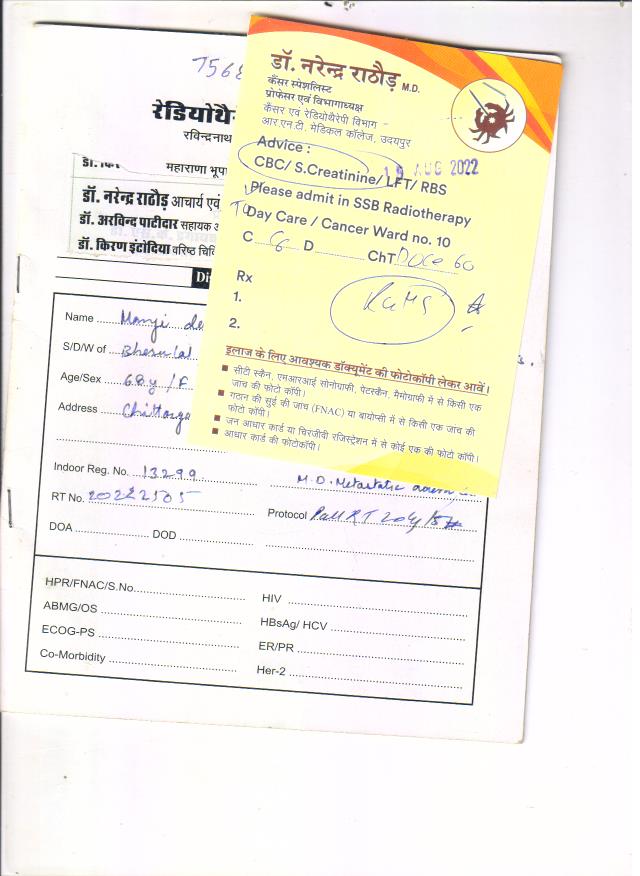 डॉ. नरेन्द्र राठौड़ M.D.
कैंसर स्पेशलिस्ट
प्रोफेसर एवं विभागाध्यक्ष
कैंसर एवं रेडियोथैरेपी विभाग
आर.एन.टी. मेडिकल कॉलेज, उदयपुर
Advice :
19 AUG 2022
CBC/ S.Creatinine/ LFT/ RBS
Please admit in SSB Radiotherapy
Day Care / Cancer Ward no. 10
C C6 D ChT Doce 60
Rx
1.
2.
इलाज के लिए आवश्यक डॉक्यूमेंट की फोटोकॉपी लेकर आवें।
सीटी स्कैन, एमआरआई सोनोग्राफी, पेटस्कैन, मैमोग्राफी में से किसी एक
जांच की फोटो कॉपी।
गठान की सुई की जांच (FNAC) या बायोप्सी में से किसी एक जांच की
फोटो कॉपी।
जन आधार कार्ड या चिरंजीवी रजिस्ट्रेशन में से कोई एक की फोटो कॉपी।
आधार कार्ड की फोटोकॉपी।
रेडियोथै
रविन्द्रनाथ
महाराणा भूपा
डॉ. नरेन्द्र राठौड़ आचार्य एवं
डॉ. अरविन्द पाटीदार सहायक
डॉ. किरण इंटोदिया वरिष्ठ चि
Di
Name
S/D/W of
Age/Sex 68y / F
Address
Indoor Reg. No. 13299
M.D. Metastatic
RT No. 20222505
Protocol Pall RT
DOA DOD
HPR/FNAC/S.No.
HIV
ABMG/OS
HBsAg/ HCV
ECOG-PS
ER/PR
Co-Morbidity
Her-2